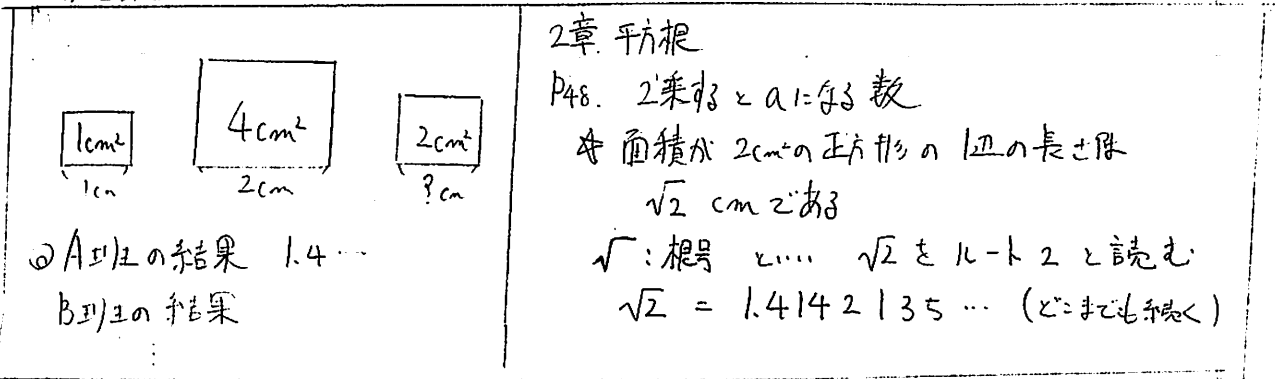 1cm²
1cm
4cm²
2cm
2cm²
?cm
◎A班の結果 1.4…
B班の結果
⋮
2章. 平方根
P48. 2乗するとaになる数
☆ 面積が2cm²の正方形の1辺の長さは
√2 cmである
√ : 根号 と‥‥ √2をルート2と読む
√2 = 1.4142135… (どこまでも続く)